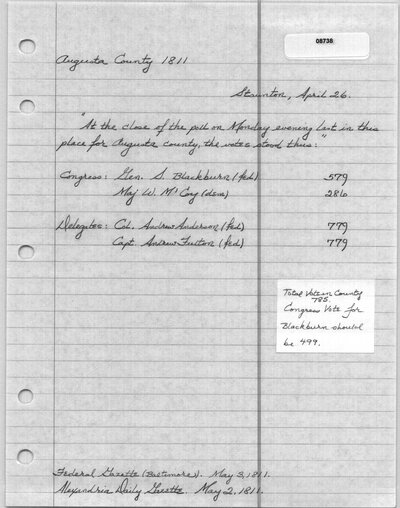 08738
Augusta County 1811
Staunton, April 26.
"At the close of the poll on Monday evening last in this
place for Augusta county, the votes stood thus:"
Congress: Gen. S. Blackburn (fed) 579
Maj W. McCoy (dem) 286
Delegates: Col. Andrew Anderson (fed) 779
Capt. Andrew Fulton (fed) 779
Total Votes in County
785.
Congress Vote for
Blackburn should
be 499.
Federal Gazette (Baltimore). May 3, 1811.
Alexandria Daily Gazette. May 2, 1811.